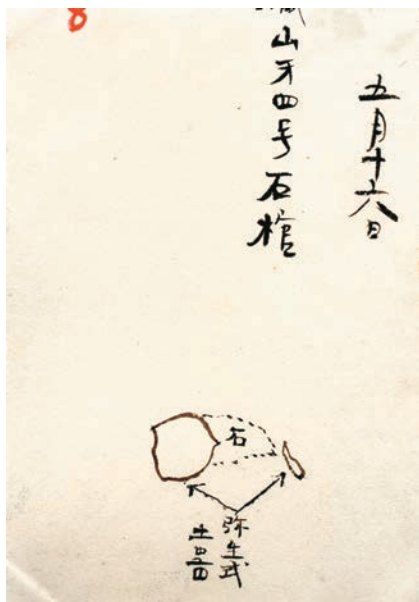 五月十六日
山才四号石棺
8
石
弥生式
土器